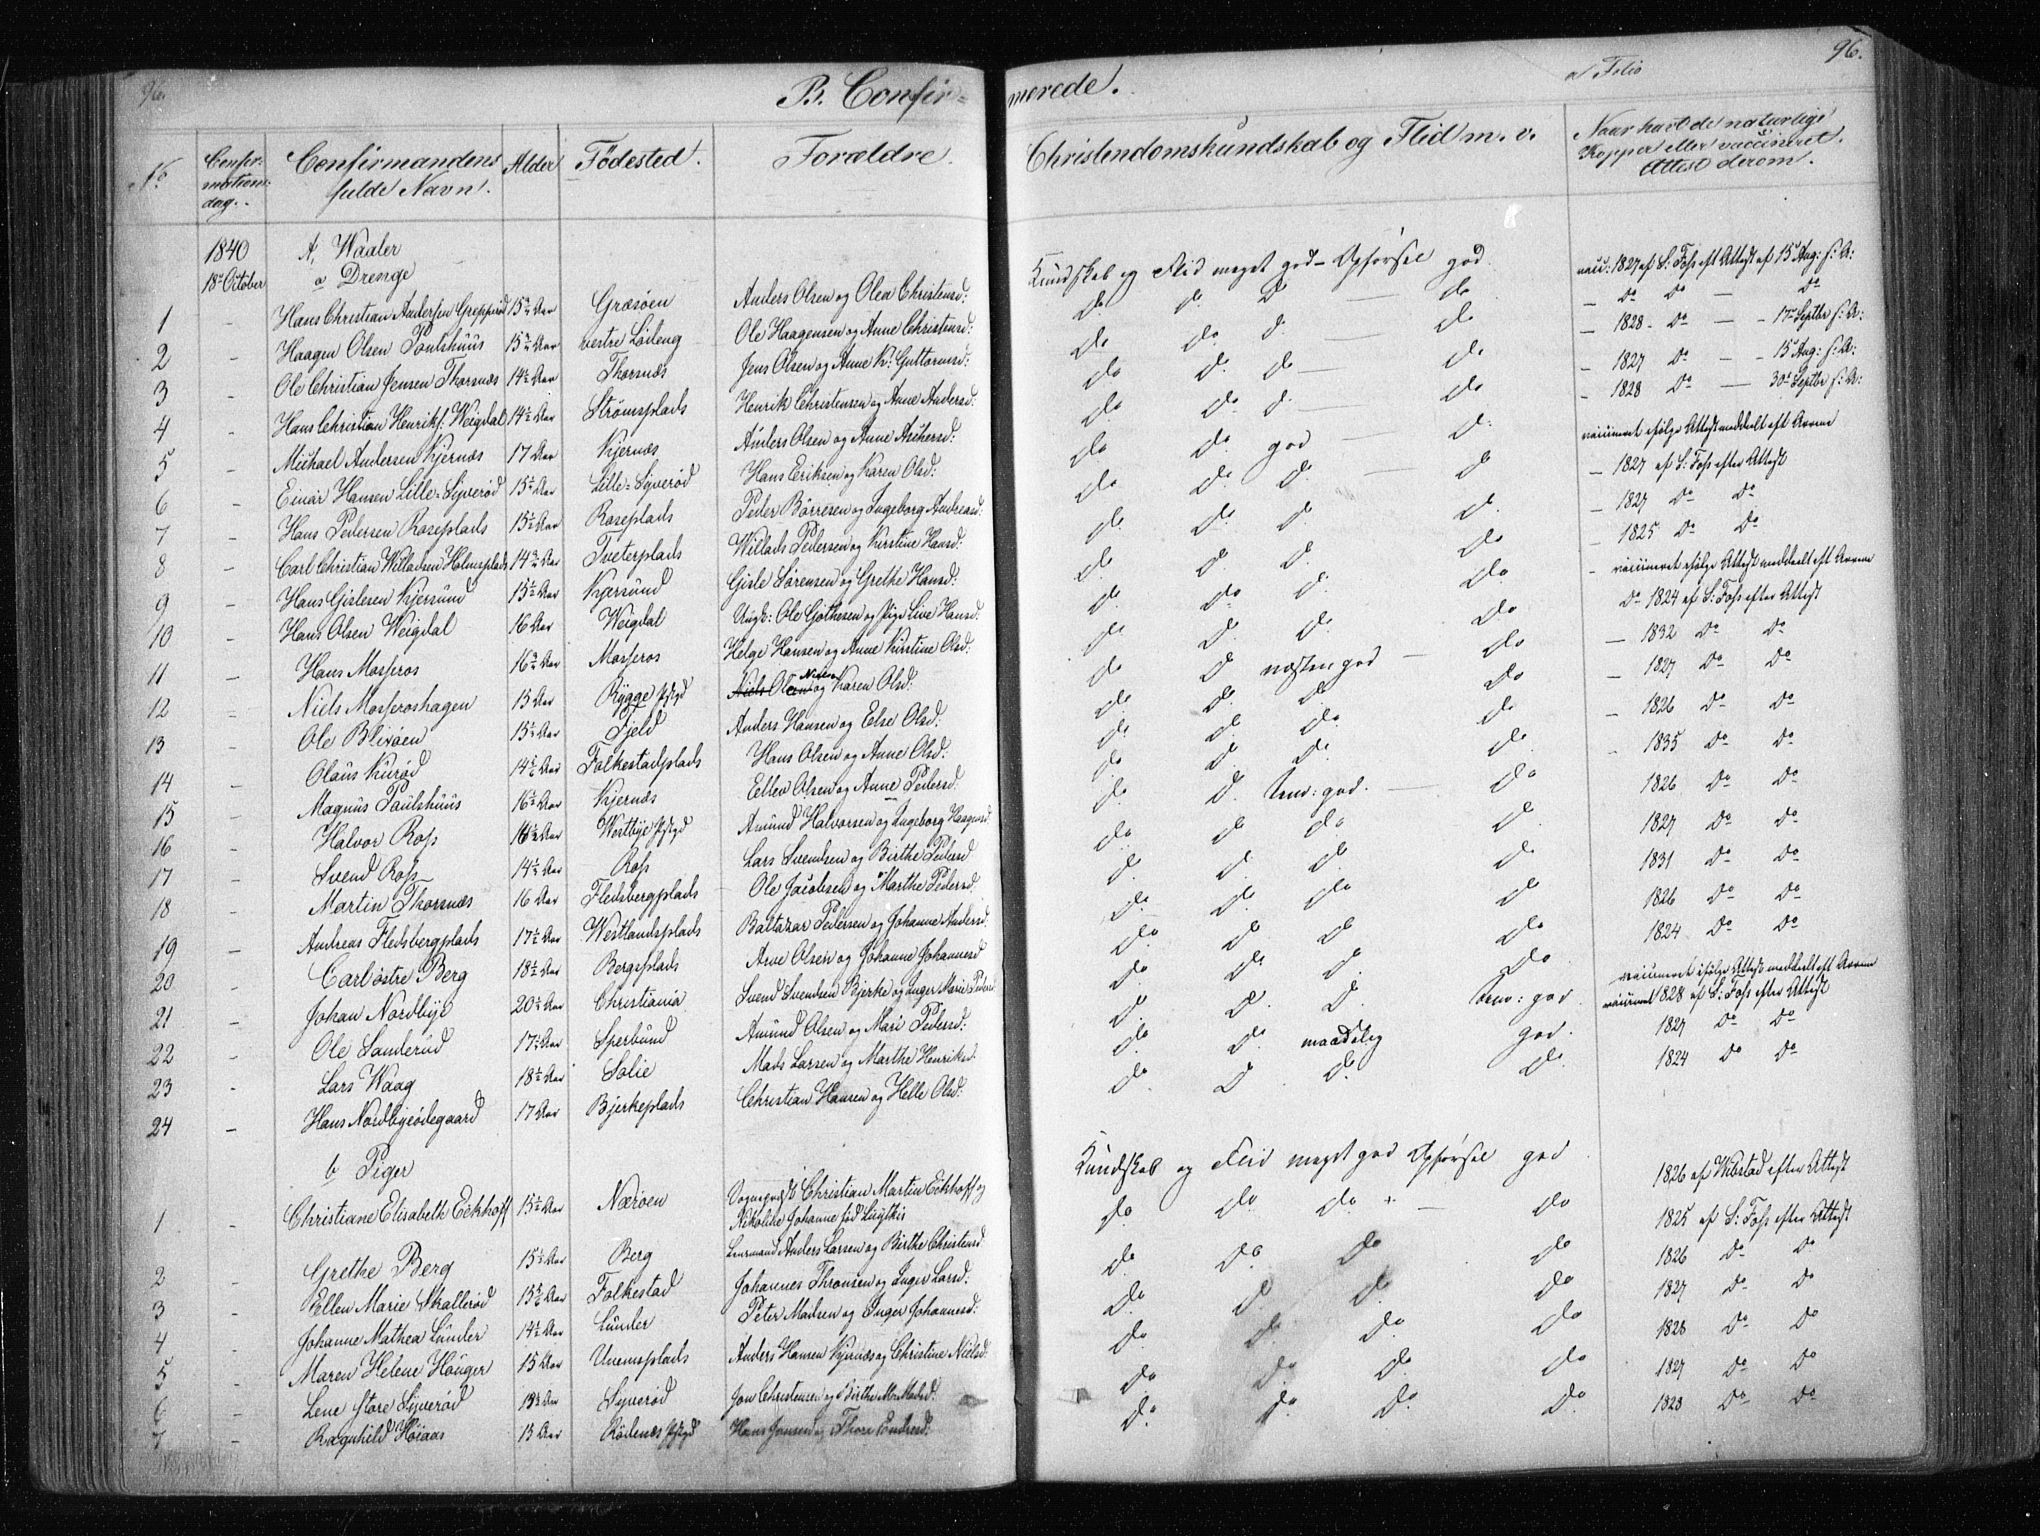 96.
B. Confir=
merede.
Folio
96.
No
Confir-
mations
dag.
Confirmandens
fulde Navn.
Alder
Födested.
Forældre.
Christendomskundskab og Flid m. v.
Naar havt de naturlige
Kopper eller vaccineret.
Attest derom.
1840
18de October
A, Waaler
a Drenge
1 - Hans Christian Andersen Grepperød Aar Græsøen Anders Olsen og Olea Christensd: Kundskab og Flid meget god - Opførsel god. vacc: 1827 af S: Foss eft Attest af 15 Aug: s: A:
2 - Haagen Olsen Poulshuus 15½ Aar vestre Löileng Ole Haagensen og Anne Christensd: do do do - do - do do - do
3 - Ole Christian Jensen Thorsnæs 14½ Aar Thorsnæs Jens Olsen og Anne K: Guttormsd: do do do - do - 1828 - do - 17 Septbr s: A:
4 - Hans Christian Henriks: Weigdal 14½ Aar Strömsplads Henrik Christensen og Anne Andersd: do do do - do - 1827 do - 15 Aug: s: A:
5 - Michael Andersen Kjernæs 17 Aar Kjernæs Anders Olsen og Anne do do do do - 1828 do - 30 Septbr s: A:
6 - Einar Hansen Lille-Syverød 15½ Aar Lille-Syverød Hans Eriksen og Karen Olsd: do do god - do: vaccineret ifølge Attest meddeelt eft
7 - Hans Pedersen Roseplads 15½ Aar Roseplads Peder Börresen og Ingeborg Andreasd: do do do - do - 1827 af S: Foss efter Attest
8 - Carl Christian Willadsen Holmsplads Aar Tveterplads Willads Pedersen og Kirstine Hansd: do do do do - 1827 do do
9 - Hans Gislesen Kjersund 15½ Aar Kjersund Gisle Sörensen og Grethe Hansd: do do do do - 1825 do do
10 - Hans Olsen Weigdal 16 Aar Weigdal Ungk: Ole Gothesen og Pige Live Hansd: do do do do - vaccineret ifølge Attest meddeelt eft
11 - Hans Mosseros Aar Mosseros Helge Hansen og Anne Kirstine Olsd: do do do do do 1824 af S: Foss efter Attest
12 - Niels Mosseroshagen 15 Aar Rygge Pstgd Niels Olsen og Karen Olsd: do do næsten god - do - 1832 do do
13 - Ole Blixöen 15½ Aar Fjeld Anders Hansen og Else Olsd: do do do do - 1827 do do
14 - Olaus Kurød 14½ Aar Folkestadplads Hans Olsen og Anne Olsd: do do do do - 1826 do do
15 - Magnus Poulshuus 16½ Aar Kjernæs Ellev Olsen og Anne Pedersd: do do do do - 1835 do do
16 - Halvor Ross Aar Westbye Pstgd Amund Halvorsen og Ingeborg Haagensd do do temv: god. - do 1826 do do
17 - Svend Ross 14½ Aar Ross Lars Svendsen og Birthe Pedersd do do do do 1827 do do
18 - Martin Thorsnæs 16 Aar Fledsbergplads Ole Jacobsen og Marthe Pedersd. do do do do 1831 do do
19 - Andreas Fledsbergplads 17½ Aar Westlandsplads Baltazar Pedersen og Johanne Andersd. do do do do 1826 do do
20 - Carl östre Berg 18½ Aar Bergsplads Arne Olsen og Johanne Johannesd do do do do 1824 do do
21 - Johan Nordbye 20½ Aar Christiania Svend Svendsen Bjerke og Inger Marie Pedersd do do do do vaccineret ifølge Attest meddeelt eft
22 - Ole Sanderød Aar Sperbund Amund Olsen og Mari Pedersd: do do do temv: god vaccineret 1828 af S: Foss efter Attest
23 - Lars Waag 18½ Aar Solie Mads Larsen og Marthe Henriksd: do do maadelig god. 1827 do do
24 - Hans Nordbyeödegaard 17 Aar Bjerkeplads Christian Hansen og Helle Olsd: do do do do 1824 do do
b Piger
1 - Christiane Elisabeth Eckhoff 15½ Aar Næröen Sognepræst Christian Martin Eckhoff og
Nikoline Johanne fød
Kundskab og Flid meget god Opførsel god 1826 af Wibstad efter Attest
2 - Grethe Berg 15½ Aar Berg Lensmand Anders Larsen og Birthe Christensd do do do - do 1825 af S: Foss efter Attest
3 - Ellen Marie Skallerød Aar Folkestad Johannes Thronsen og Inger Larsd: do do do do 1826 do do
4 - Johanne Mathea Lunder 14½ Aar Lunder Peter Madsen og Inger Johannesd: do do do do 1827 do do
5 - Maren Helene Houger 15 Aar Unemsplads Anders Hansen Kjernæs og Christine Nielsd: do do do do 1828 do do
6 - Lene store Syverød Aar Syverød Jon Christensen og Birthe M: Madsd: do do do do 1827 do do
7 - Ragnhild Höiaas 15 Aar Rödenæs Pstgd Hans Jansen og Thore Endresd: do do do do 1828 do do